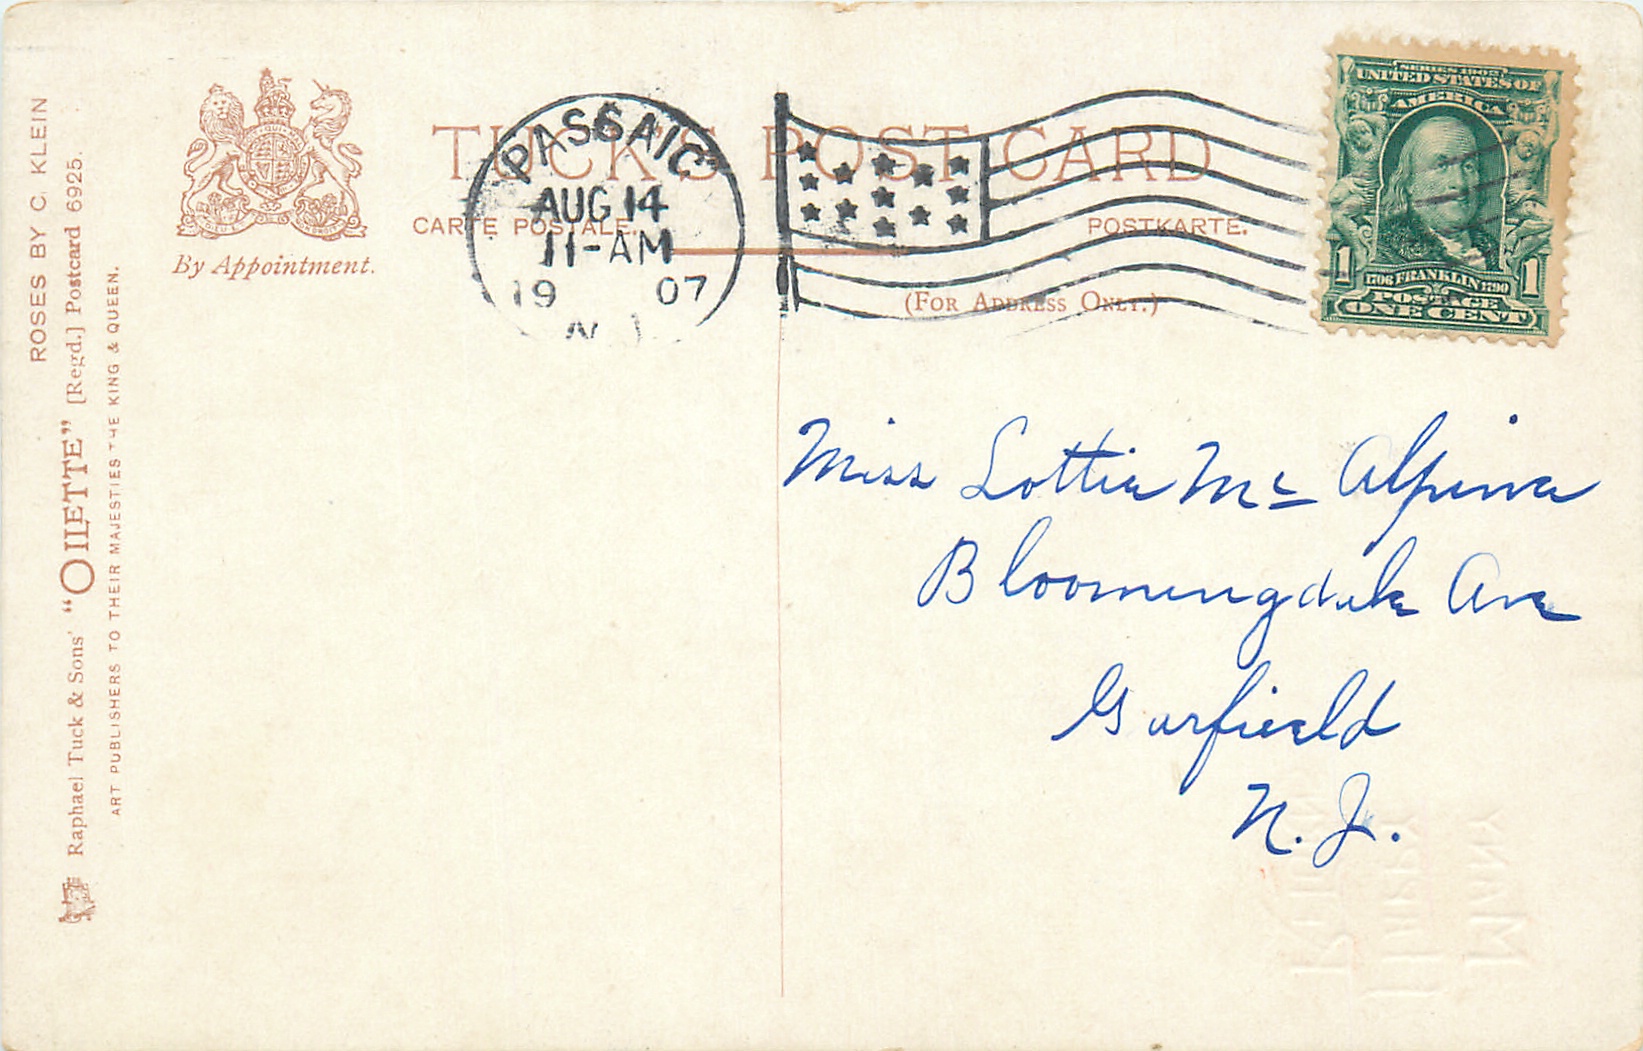 ROSES BY C. KLEIN
Raphael Tuck & Sons' "OILETTE" [Regd.] Postcard 6925.
ART PUBLISHERS TO THEIR MAJESTIES THE KING & QUEEN.
By Appointment.
TUCK'S POST CARD
CARTE POSTALE.
POSTKARTE.
(FOR ADDRESS ONLY.)
PASSAIC
AUG 14
11-AM
19 07
N.J
SERIES 1902
UNITED STATES OF
AMERICA
1706 FRANKLIN 1790
1 POSTAGE 1
ONE CENT
Miss Lottie Mc Alpine
Bloomingdale Ave
Garfield
N. J.
MANY
HAPPY